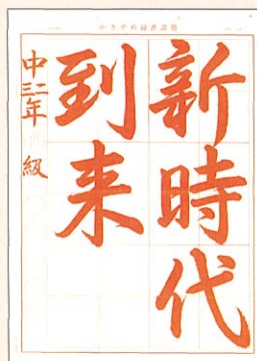 新時代
到来
中二年
級